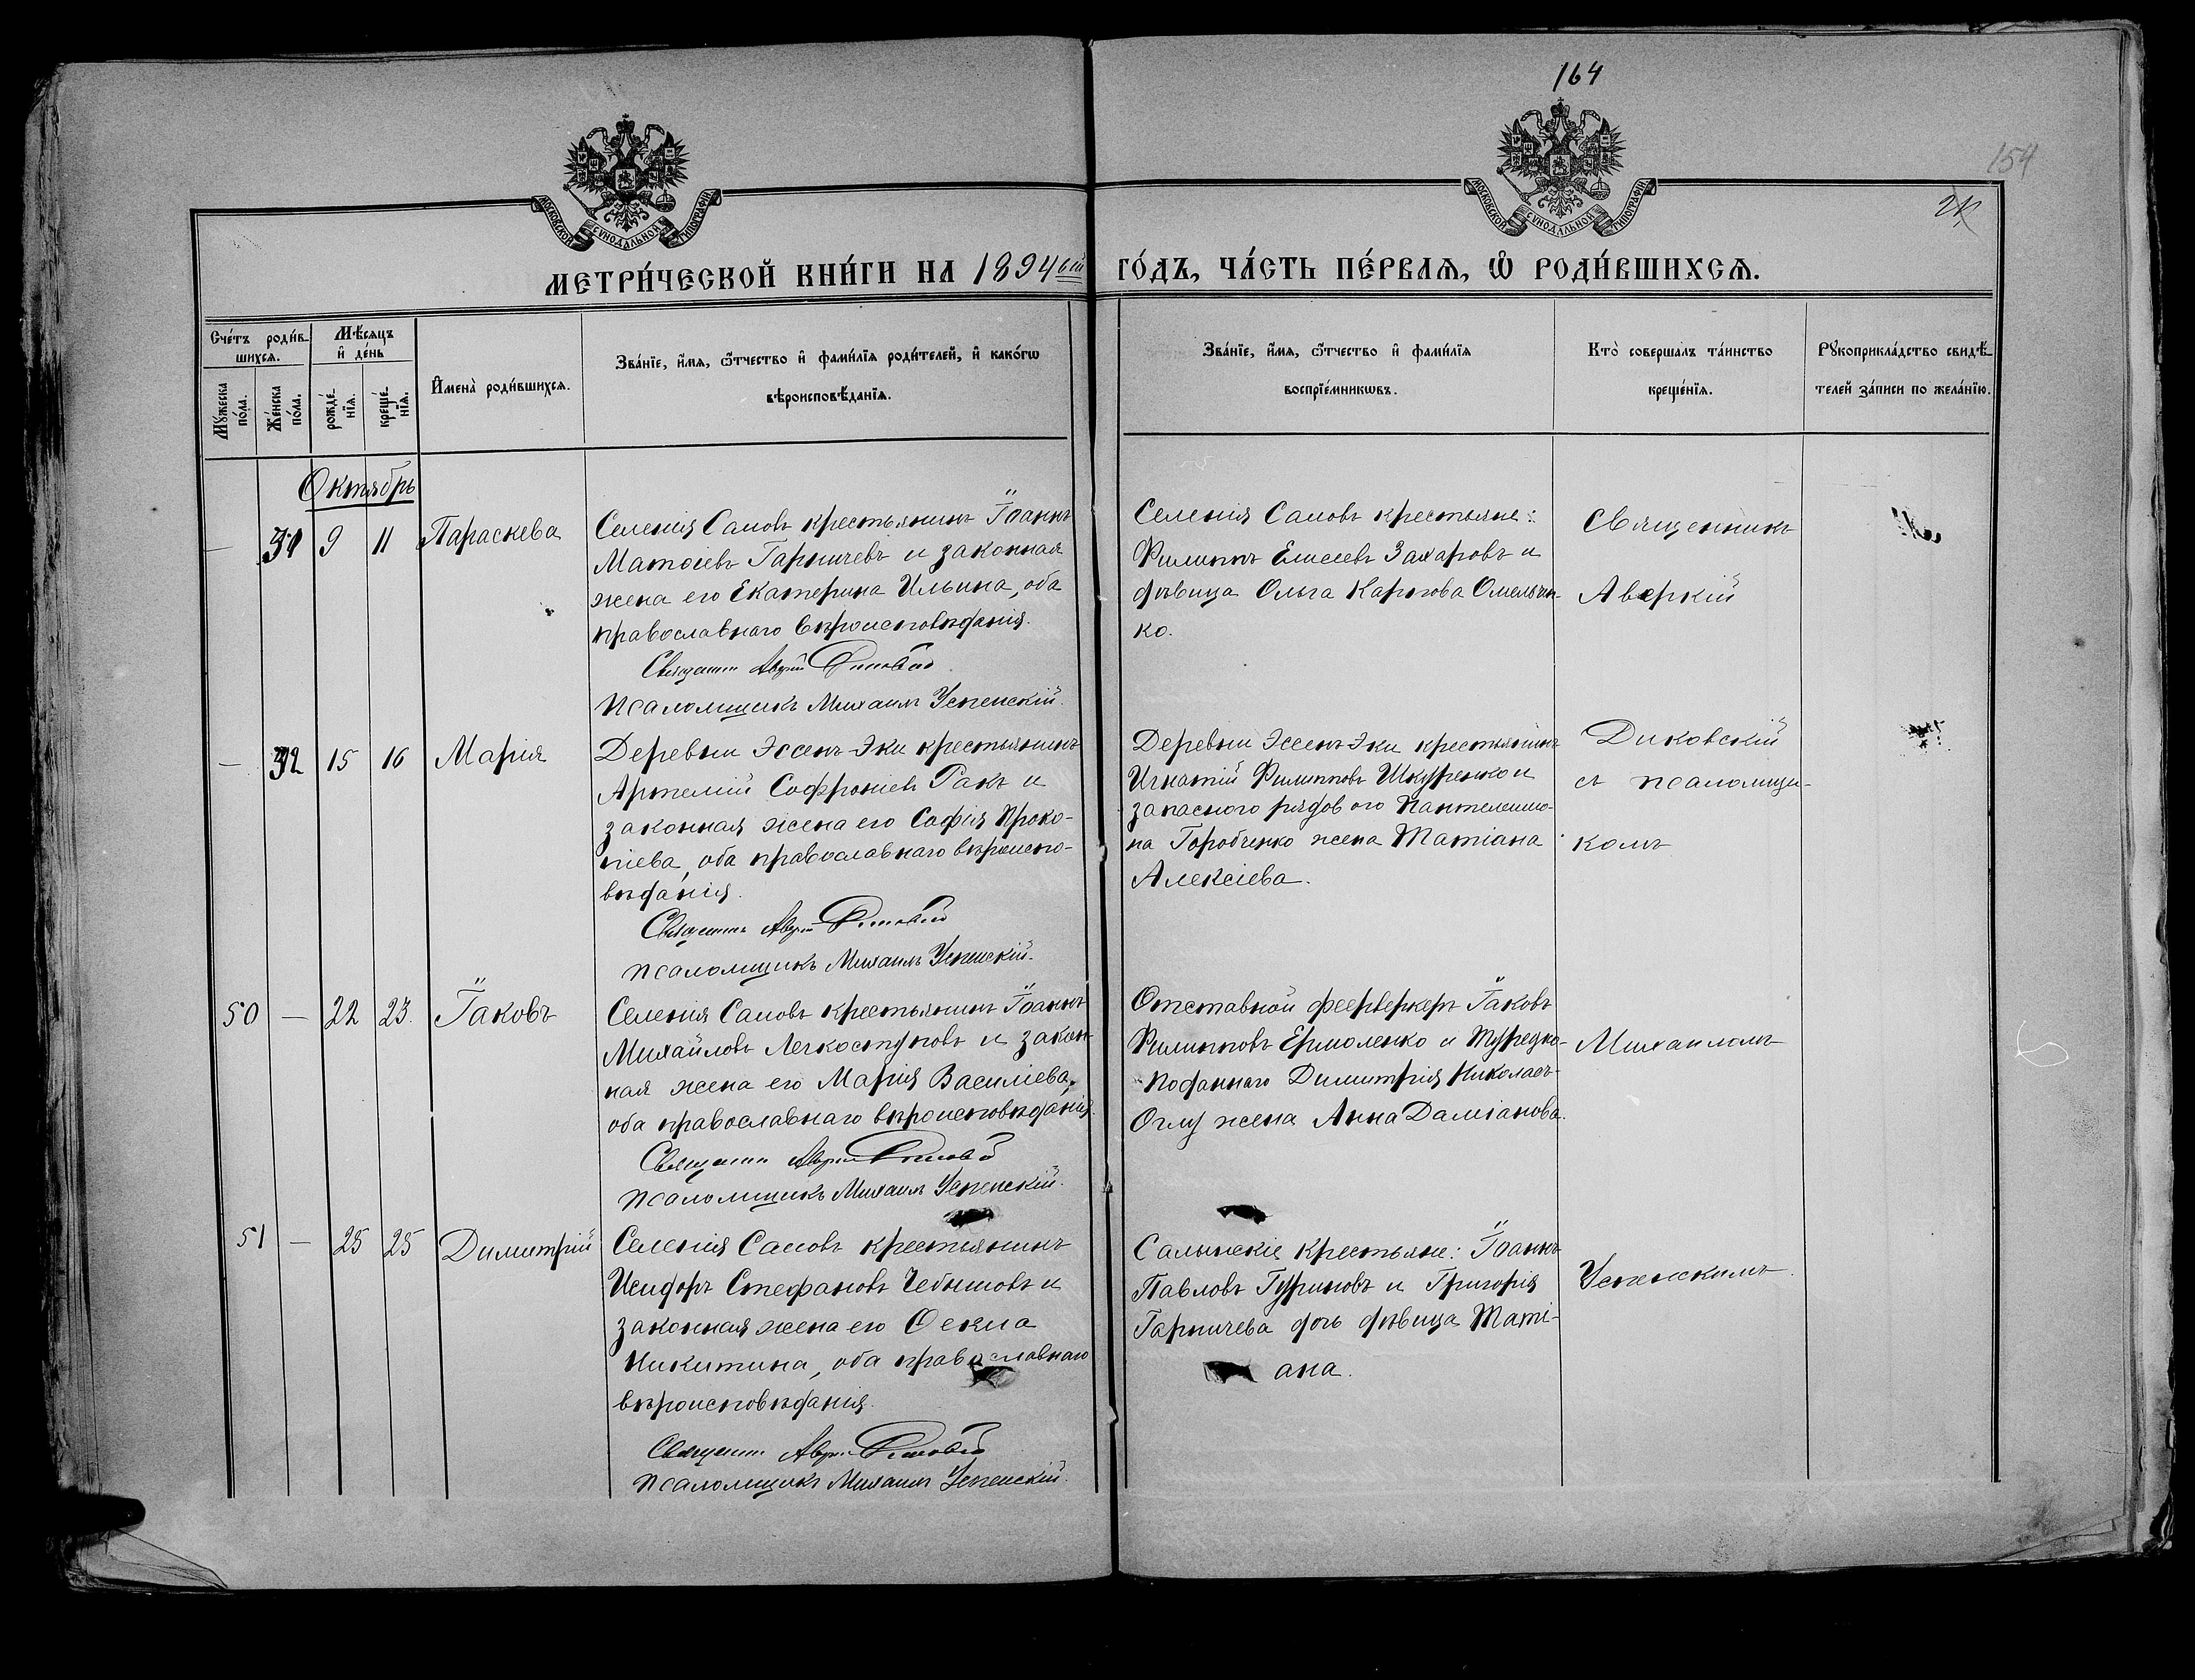 164
154
МОСКОВСКОЙ СѴНОДАЛЬНОЙ ТИПОГРАФІИ
МОСКОВСКОЙ СѴНОДАЛЬНОЙ ТИПОГРАФІИ
МЕТРИ́ЧЕСКОЙ КНИ́ГИ НА 1894ый ГО́ДЪ, ЧА́СТЬ ПЕ́РВАѦ, Ѽ РОДИ́ВШИХСѦ.
Сче́тъ роди́в-
шихсѧ.
Мѣ́сѧцъ
и҆ де́нь
Мꙋжеска по́ла.
Же́нска по́ла.
рожде́-
нїѧ.
креще́-
нїѧ.
И҆мена̀ роди́вшихсѧ.
Зва́нїе, и҆́мѧ, ѻ҆́тчество и҆ фами́лїѧ роди́телей, и҆ како́гѡ
вѣроисповѣ́данїѧ.
Зва́нїе, и҆́мѧ, ѻ҆́тчество и҆ фами́лїѧ
воспрїе́мникѡвъ.
Кто̀ соверша́лъ та́инство
креще́нїѧ.
Рꙋкоприкла́дство свидѣ́-
телей за́писи по жела́нїю.
Октябрь
— 31 9 11 Параскева
Селенія Саловъ крестьянинъ Іоаннъ
Матѳіевъ Гарничевъ и законная
жена его Екатерина Ильина, оба
православнаго вѣроисповѣданія.
Священникъ Аверкій Диковскій
Псаломщикъ Михаилъ Успенскій.
Селенія Саловъ крестьяне:
Филиппъ Елисеевъ Захаровъ и
дѣвица Ольга Карпова Омельчен-
ко.
Священникъ
Аверкій
— 32 15 16 Марія
Деревни Эссенъ-Эки крестьянинъ
Артемій Софроніевъ Ракъ и
законная жена его Софія Проко-
піева, оба православнаго вѣроиспо-
вѣданія.
Священникъ Аверкій Диковскій
Псаломщикъ Михаилъ Успенскій.
Деревни Эссенъ-Эки крестьянинъ
Игнатій Филипповъ Шкуренко и
запасного рядового Пантелеимо-
на Горобченко жена Татіана
Алексіева.
Диковскій
съ псаломщи-
комъ
50 — 22 23 Іаковъ
Селенія Саловъ крестьянинъ Іоаннъ
Михайловъ Легкоступовъ и закон-
ная жена его Марія Василіева,
оба православнаго вѣроисповѣданія.
Священникъ Аверкій Диковскій
Псаломщикъ Михаилъ Успенскій.
Отставной феерверкеръ Іаковъ
Филипповъ Ермоленко и Турецко-
подданнаго Димитрія Николаеъ-
Оглу жена Анна Даміанова.
Михаиломъ
51 — 25 25 Димитрій
Селенія Саловъ крестьянинъ
Исидоръ Стефановъ Чебышовъ и
законная жена его Ѳекла
Никитина, оба православнаго
вѣроисповѣданія.
Священникъ Аверкій Диковскій
Псаломщикъ Михаилъ Успенскій.
Салынскіе крестьяне: Іоаннъ
Павловъ Гуриновъ и Григорія
Гарничева дочь дѣвица Таті-
ана.
Успенскимъ.